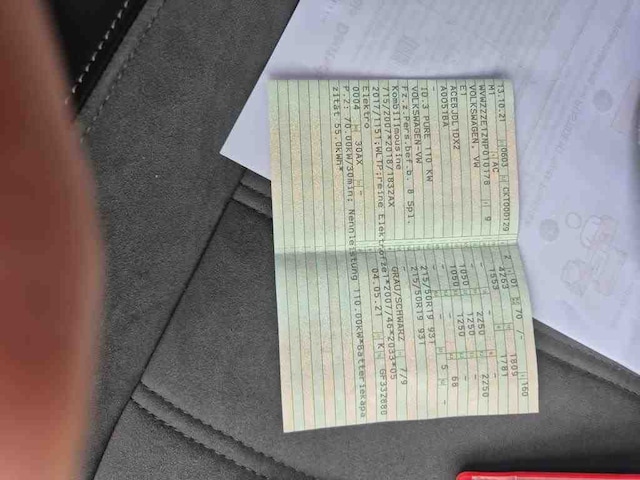 13.10.21 0603 CKT000129 2 01 70 /- 160
M1 AC 4263 1809
WVWZZZE1ZNP010178 9 1553 1781
VOLKSWAGEN, VW - 2250 - 2250
E1 1050 1250
ACEBJDL1DX2 1050 1250 68
A005TBA - - 5 -
- 215/50R19 93T
ID.3 PURE 110 KW 215/50R19 93T
VOLKSWAGEN-VW -
Fz.z.Pers.bef.b. 8 Spl. GRAU/SCHWARZ 7/9
Kombilimousine 04.05.21 K GF332880
715/2007*2018/1832AX
2007/1151;WLTP;reine Elektrofzg1*2007/46*2033*05
Elektro
0004 30AX -
P.2: 70.00KW/30min; Nennleistung 110.00KW*Batteriekapa
zität:55.0kWh*